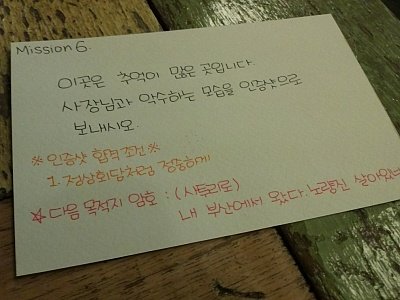 Mission 6.
이곳은 추억이 많은 곳입니다.
사장님과 악수하는 모습을 인증샷으로
보내시오.
※ 인증샷 합격 조건 ※
1. 정상회담처럼 정중하게
☆ 다음 목적지 암호 : (사투리로)
내 부산에서 왔다. 노량진 살아있네